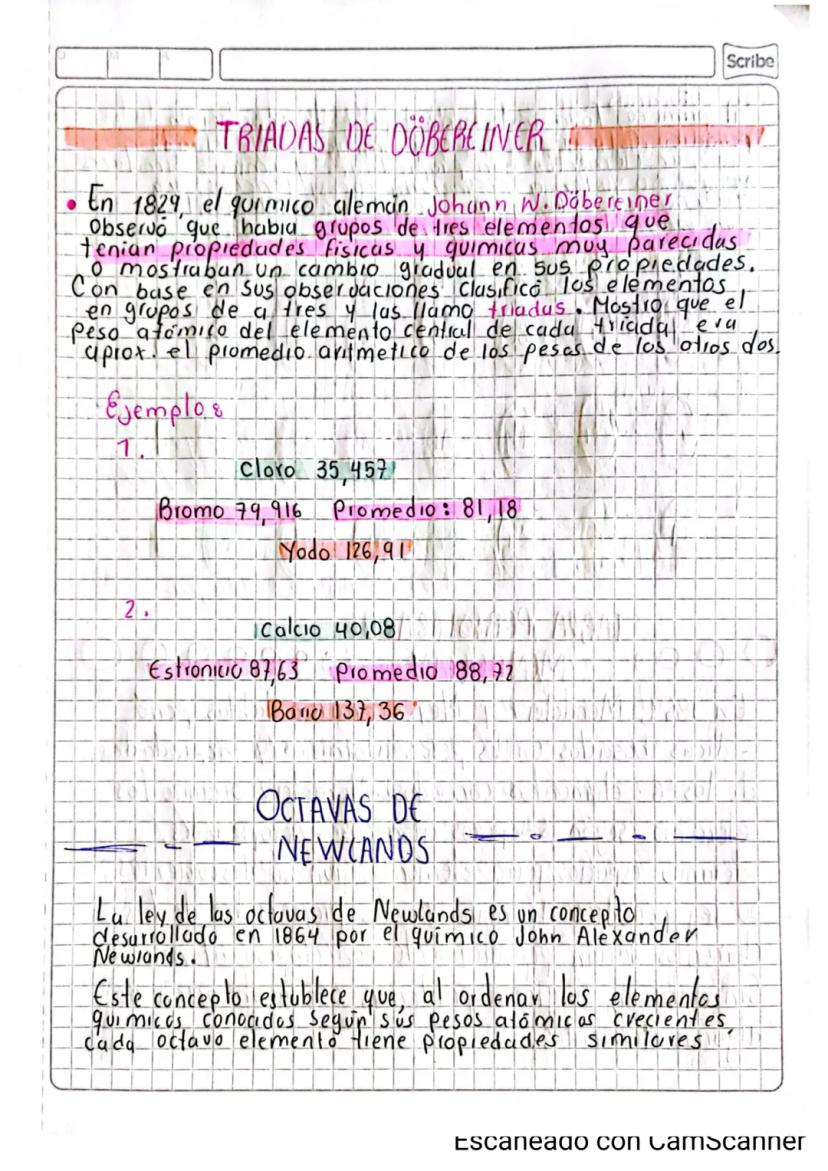 D M A
Scribe
TRIADAS DE DÖBEREINER
• En 1829, el químico alemán Johann W. Döbereiner
Observó que había grupos de tres elementos que
tenian propiedades fisicas y quimicas muy parecidas
o mostraban un cambio gradual en sus propiedades.
Con base en sus observaciones clasificó los elementos
en grupos de a tres y las llamo triadas. Mostro que el
Peso atómico del elemento central de cada triada era
aprox. el promedio aritmetico de los pesos de los otros dos.
Ejemplos
1.
Cloro 35,457
Bromo 79,916 Promedio: 81,18
Yodo 126,91
2.
Calcio 40,08
Estroncio 87,63 Promedio 88,72
Bario 137,36
OCTAVAS DE
NEWLANDS
La ley de las octavas de Newlands es un concepto
desarrollado en 1864 por el químico John Alexander
Newlands.
Este concepto establece que, al ordenar los elementos
quimicos conocidos según sus pesos atómicos crecientes,
cada octavo elemento tiene propiedades similares
Escaneado con CamScanner